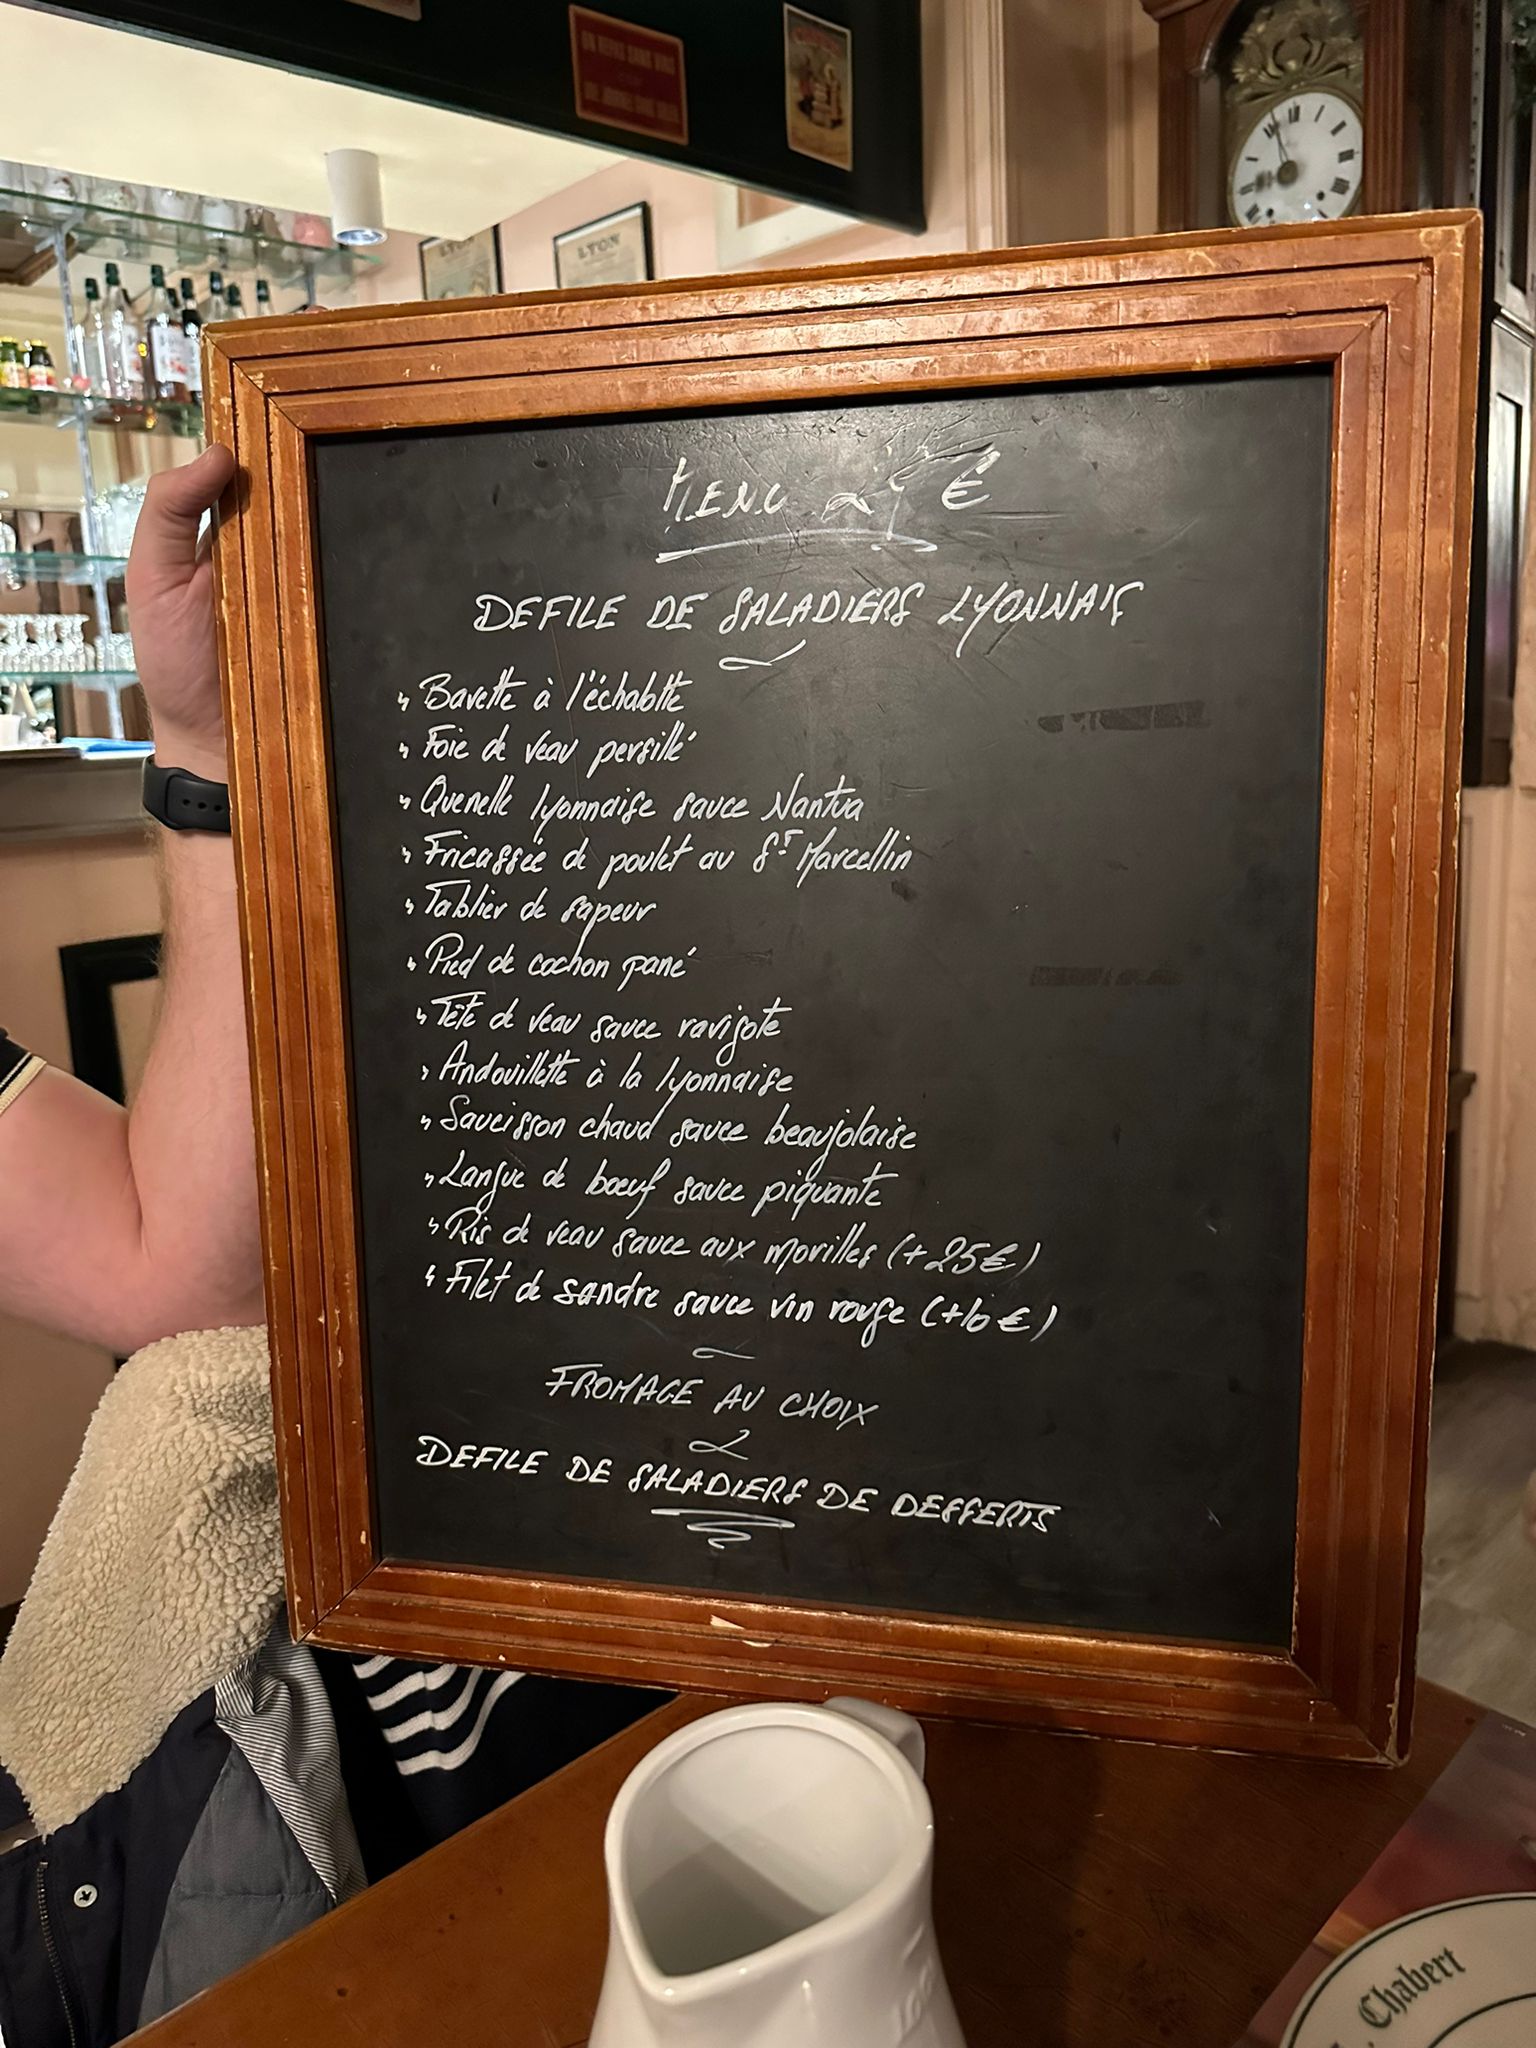 UN REPAS SANS VIN
LYON
LYON
MENU €
DEFILE DE SALADIERS LYONNAIS
Bavette à l'échalotte
Foie de veau persillé
Quenelle lyonnaise sauce Nantua
Fricassée de poulet au St Marcellin
Tablier de sapeur
Pied de cochon pané
Tête de veau sauce ravigote
Andouillette à la lyonnaise
Saucisson chaud sauce beaujolaise
Langue de bœuf sauce piquante
Ris de veau sauce aux morilles (+25€)
Filet de sandre sauce vin rouge (+10€)
FROMAGE AU CHOIX
DEFILE DE SALADIERS DE DESSERTS
Chabert